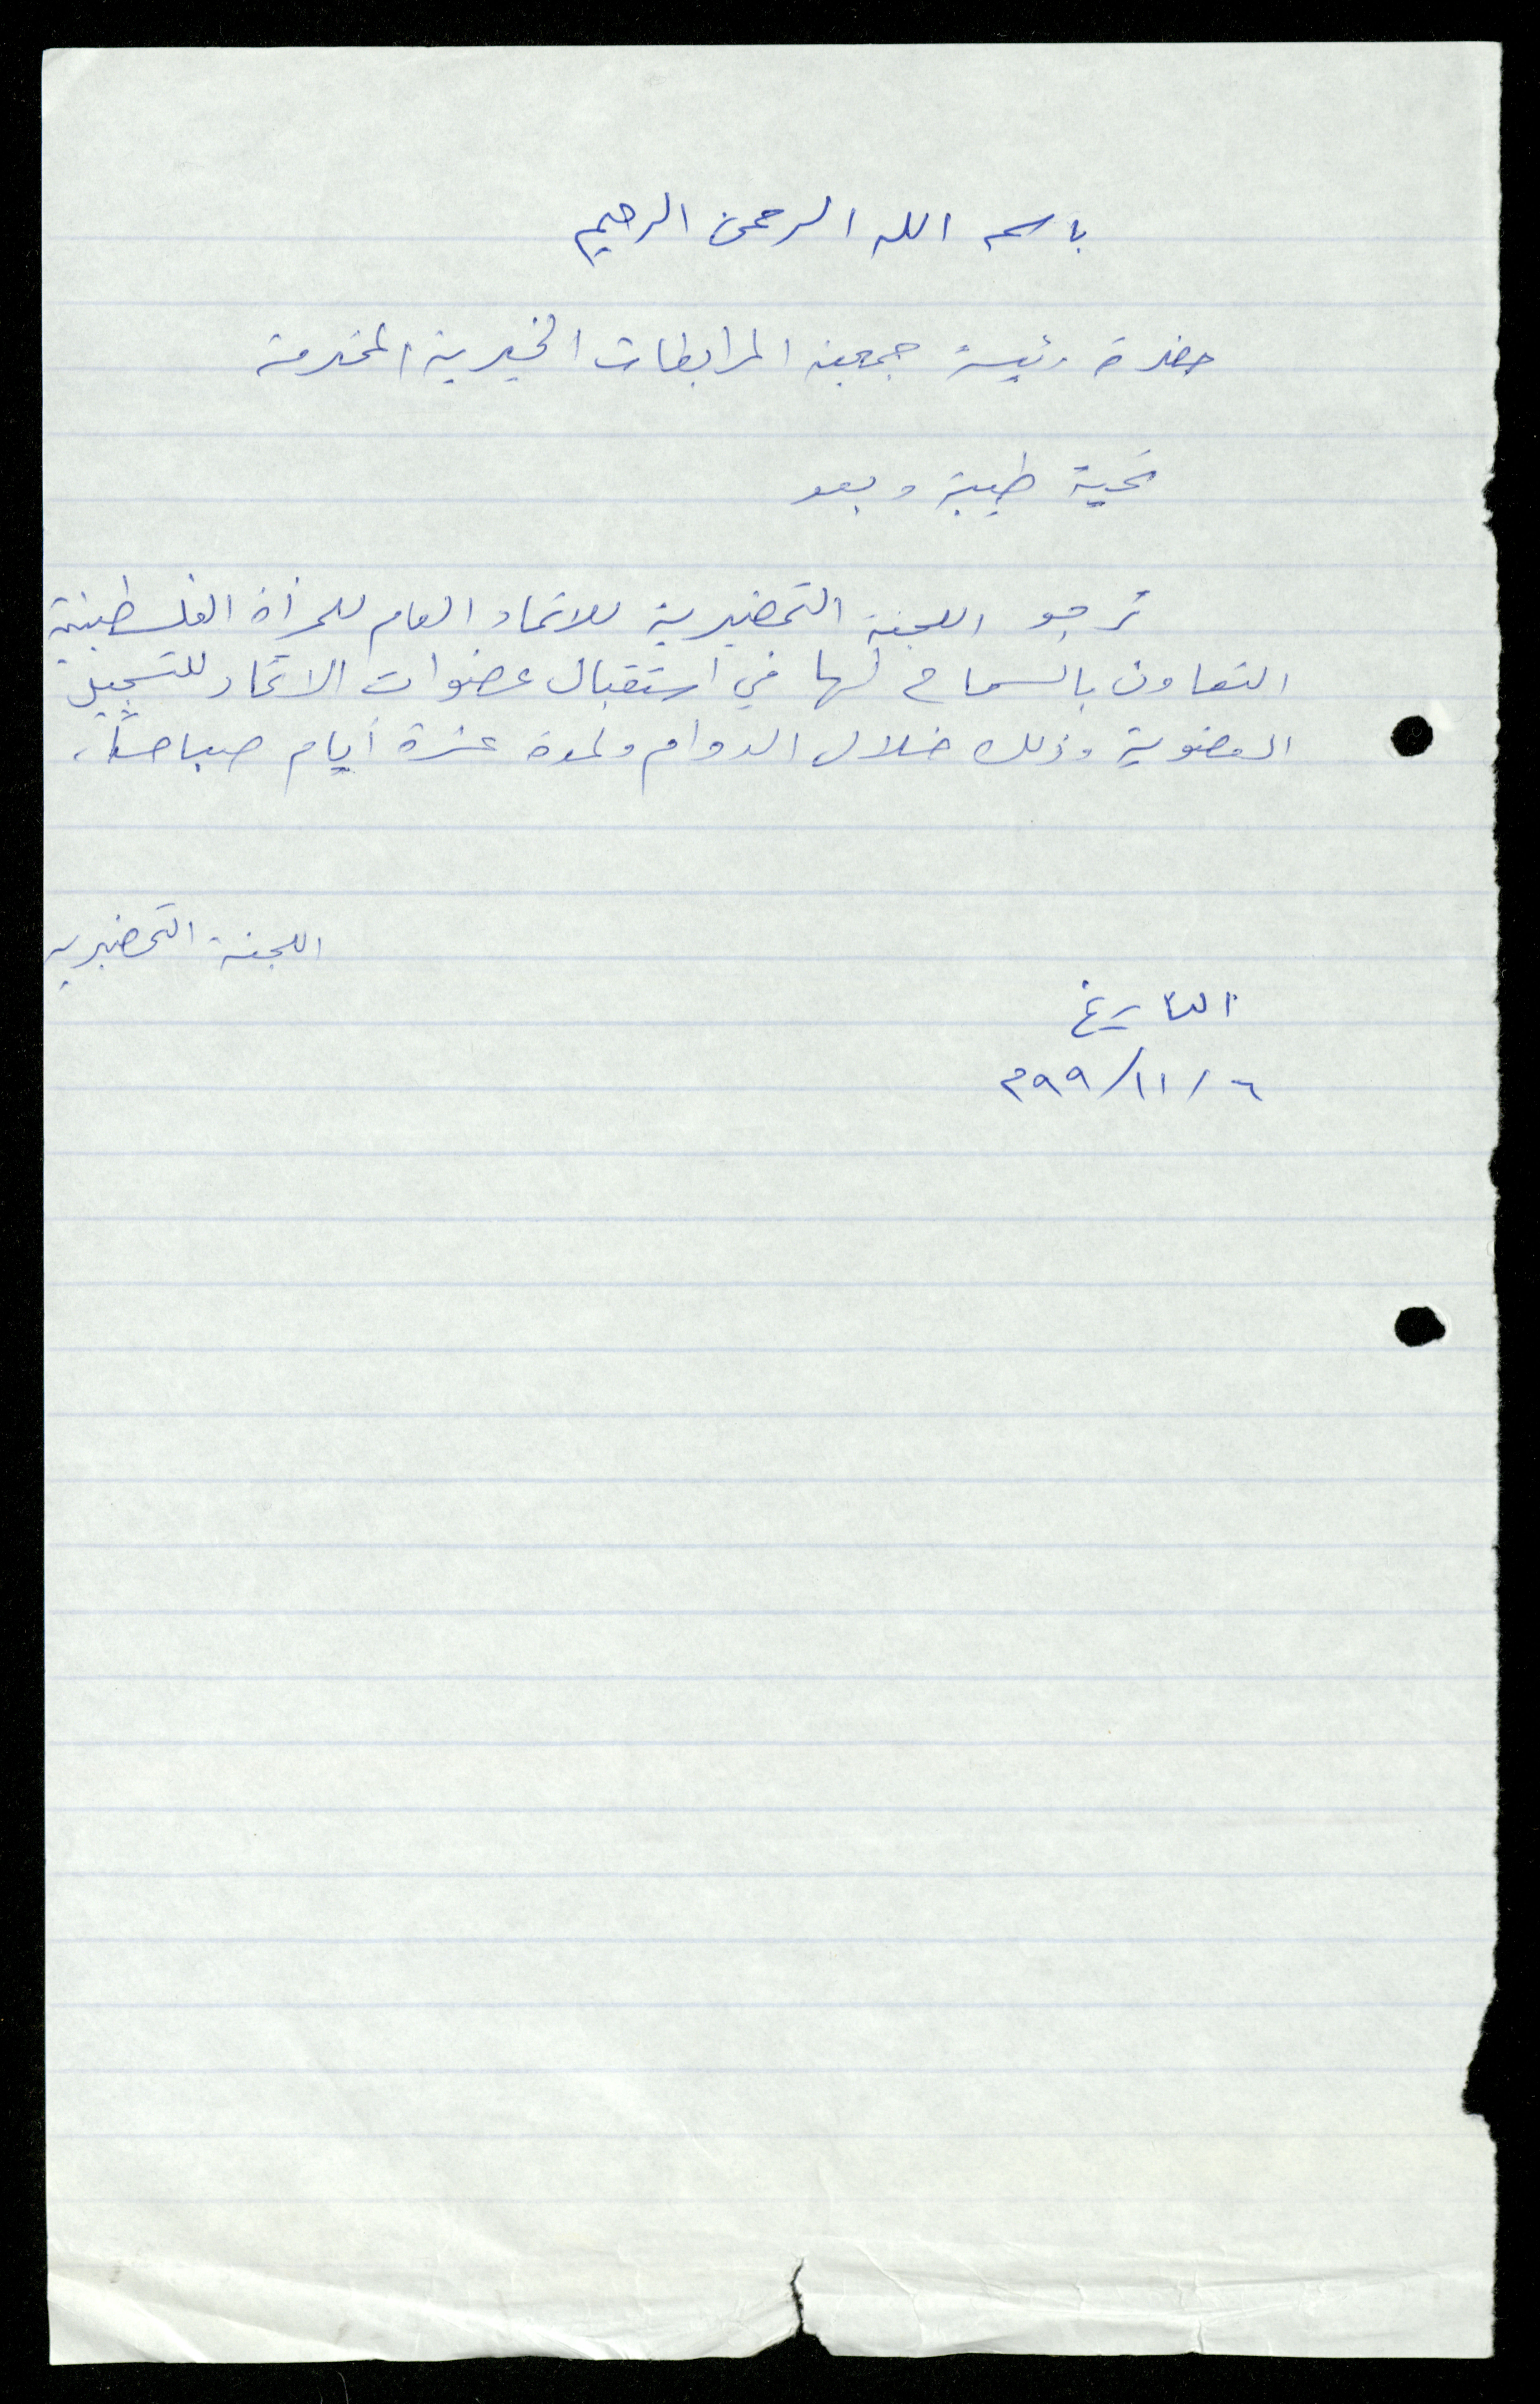 باسم الله الرحمن الرحيم
حضرة رئيسة جمعية المرابطات الخيرية المحترمة
تحية طيبة وبعد
ترجو اللجنة التحضيرية للاتحاد العام للمرأة الفلسطينية
التعاون بالسماح لها في استقبال عضوات الاتحاد للتسجيل
العضوية وذلك خلال الدوام ولمدة عشرة أيام صباحاً،
اللجنة التحضيرية
التاريخ
٦/١١/٩٩م